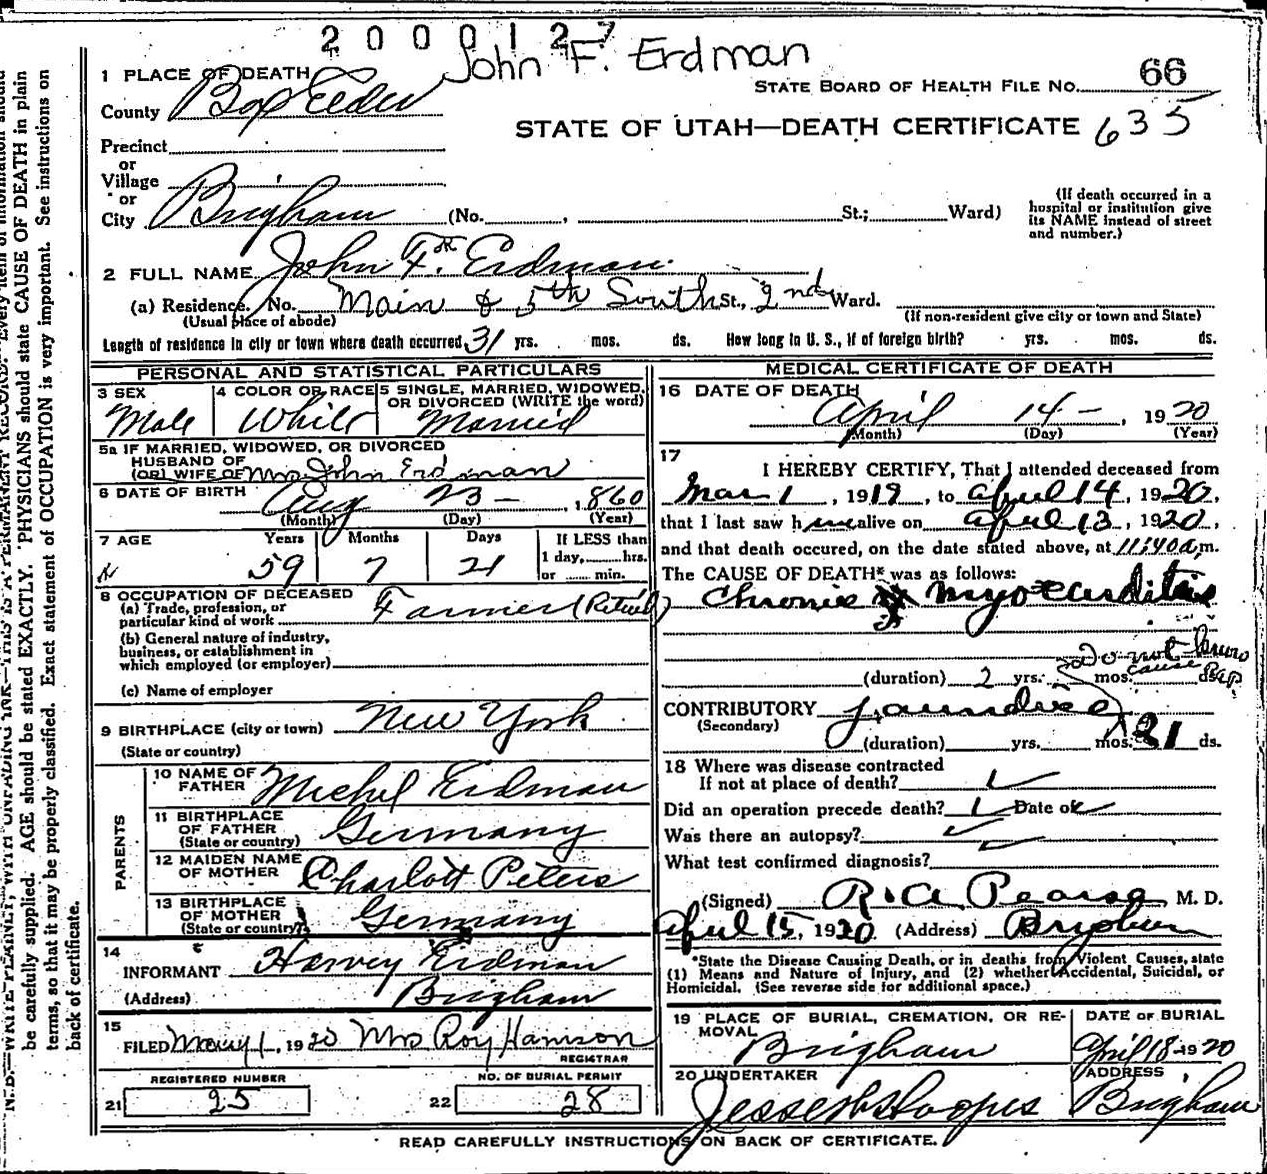 2000127
John F. Erdman
1 PLACE OF DEATH
STATE BOARD OF HEALTH FILE NO. 66
County Box Elder
STATE OF UTAH—DEATH CERTIFICATE 635
Precinct
or
Village
or
City Brigham (No. , St.; Ward)
(If death occurred in a hospital or institution give its NAME instead of street and number.)
2 FULL NAME John F. Erdman
(a) Residence. No. Main & 5th South St., 2nd Ward.
(Usual place of abode) (If non-resident give city or town and State)
Length of residence in city or town where death occurred 31 yrs. mos. ds. How long in U. S., if of foreign birth? yrs. mos. ds.
PERSONAL AND STATISTICAL PARTICULARS
3 SEX Male
4 COLOR OR RACE White
5 SINGLE, MARRIED, WIDOWED, OR DIVORCED (WRITE the word) Married
5a IF MARRIED, WIDOWED, OR DIVORCED
HUSBAND OF
(OR) WIFE OF Mrs John Erdman
6 DATE OF BIRTH Aug 23 – , 1860
(Month) (Day) (Year)
7 AGE Years Months Days If LESS than
59 7 21 1 day, hrs.
or min.
8 OCCUPATION OF DECEASED
(a) Trade, profession, or
particular kind of work Farmer (Retired)
(b) General nature of industry,
business, or establishment in
which employed (or employer)
(c) Name of employer
9 BIRTHPLACE (city or town) New York
(State or country)
PARENTS
10 NAME OF FATHER Michel Erdman
11 BIRTHPLACE OF FATHER (State or country) Germany
12 MAIDEN NAME OF MOTHER Charlott Peters
13 BIRTHPLACE OF MOTHER (State or country) Germany
14
INFORMANT Harvey Erdman
(Address) Brigham
15
FILED May 1, 1920 Mrs Roy Harrison
REGISTRAR
REGISTERED NUMBER NO. OF BURIAL PERMIT
21 25 22 28
MEDICAL CERTIFICATE OF DEATH
16 DATE OF DEATH
April 14 – , 1920
(Month) (Day) (Year)
17
I HEREBY CERTIFY, That I attended deceased from
Mar 1, 1919, to April 14, 1920,
that I last saw him alive on April 13, 1920,
and that death occured, on the date stated above, at 11:40 a m.
The CAUSE OF DEATH* was as follows:
Chronic myocarditis
Do not know
cause RAP
(duration) 2 yrs. mos. ds.
CONTRIBUTORY Jaundice
(Secondary)
(duration) yrs. mos. 21 ds.
18 Where was disease contracted
If not at place of death?
Did an operation precede death? Date of
Was there an autopsy?
What test confirmed diagnosis?
(Signed) R. A. Pearse M. D.
April 15, 1920 (Address) Brigham
*State the Disease Causing Death, or in deaths from Violent Causes, state
(1) Means and Nature of Injury, and (2) whether Accidental, Suicidal, or
Homicidal. (See reverse side for additional space.)
19 PLACE OF BURIAL, CREMATION, OR RE-
MOVAL Brigham
DATE OF BURIAL
April 18 – 1920
20 UNDERTAKER
ADDRESS
Brigham
READ CAREFULLY INSTRUCTIONS ON BACK OF CERTIFICATE.
be carefully supplied. AGE should be stated EXACTLY. PHYSICIANS should state CAUSE OF DEATH in plain
terms, so that it may be properly classified. Exact statement of OCCUPATION is very important. See instructions on
back of certificate.